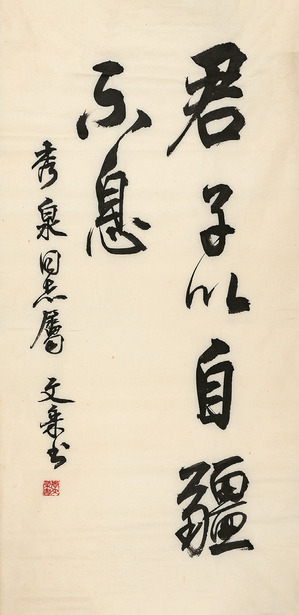 君子以自疆
不息
秀泉同志属 文采书